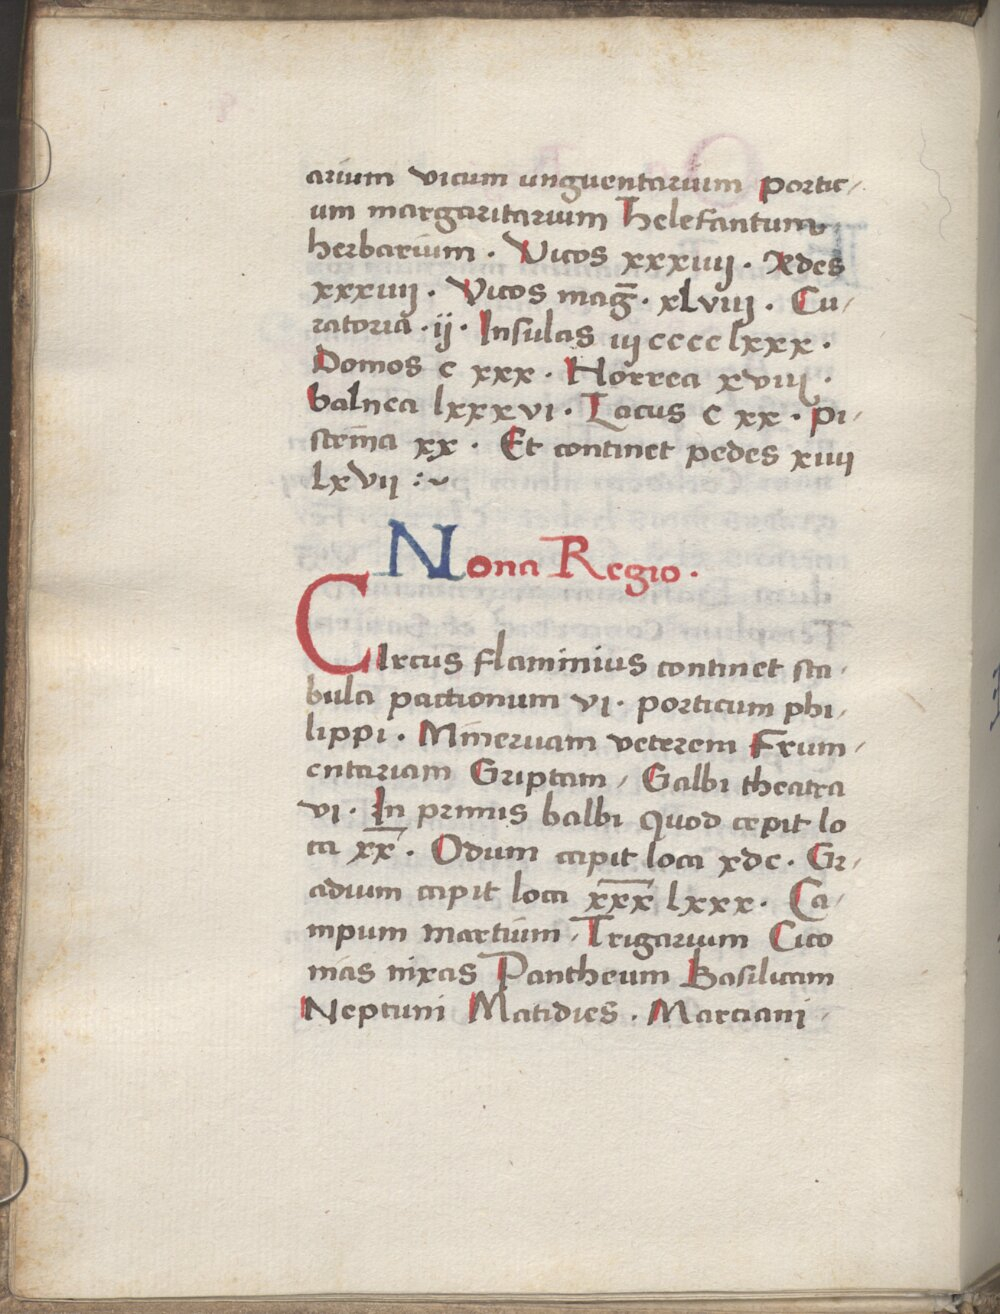 arium vicum unguentarium portic/
um margaritarium helefantum
herbarium . Vicos xxxiiij . Ædes
xxxiiij . Vicos mag̅ . xLviij . Cu/
ratoria . ij . Insulas iijcccclxxx .
Domos c xxx . Horrea xviij .
balnea lxxxvi . Lacus c xx . pi/
strina xx . Et continet pedes xiiij
lxvij :~
Nona Regio .
CIrcus flaminius continet sta/
bula pactionum vi . porticum phi/
lippi . Mineruam veterem Frum/
entariam Griptam / Galbi theatra
vi . In primis balbi quod cepit lo
ca x̅x̅ . Odum capit loca xdc . Gr/
adium capit loca x̅x̅x̅ lxxx . Ca/
mpum martium . Trigarium Cico
nias nixas Pantheum Basilicam
Neptuni Matidies . Marciani /